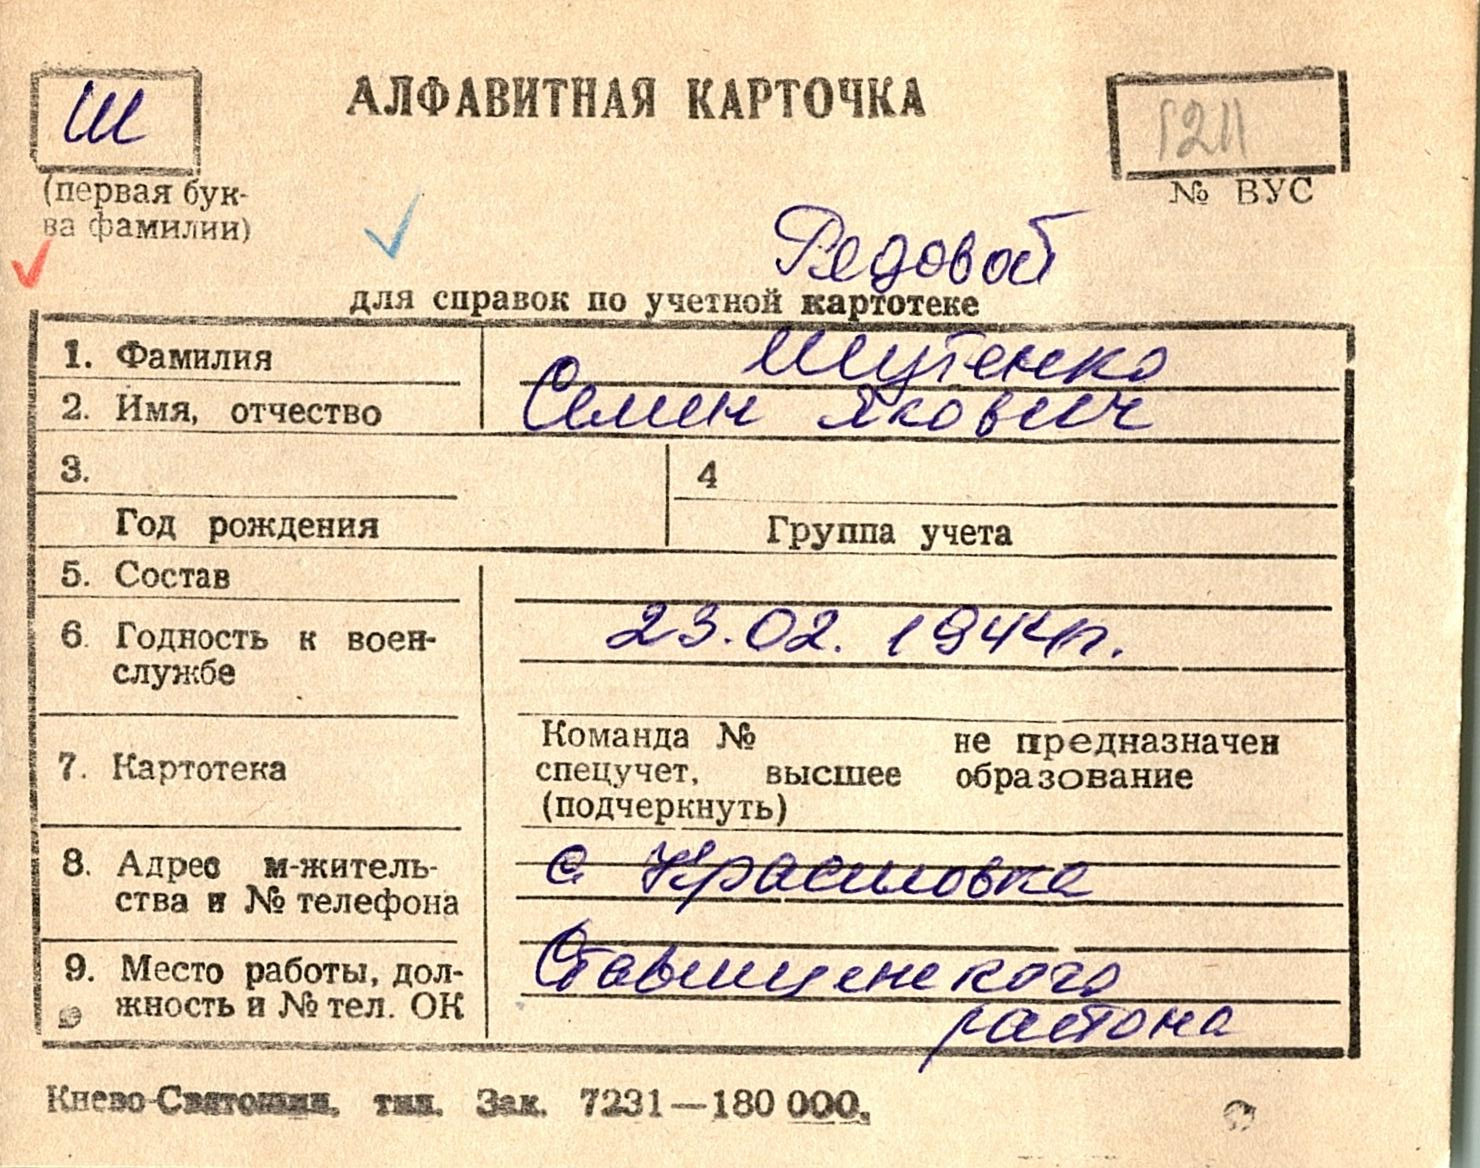 Ш
АЛФАВИТНАЯ КАРТОЧКА
1211
(первая бук-
ва фамилии)
№ ВУС
Рядовой
для справок по учетной картотеке
1. Фамилия Шутенко
2. Имя, отчество Семен Якович
3.
4
Год рождения
Группа учета
5. Состав
6. Годность к воен-
службе
23.02. 1944г.
Команда № не предназначен
7. Картотека
спецучет, высшее образование
(подчеркнуть)
8. Адрес м-житель-
ства и № телефона
с Красиловка
9. Место работы, дол-
жность и № тел. ОК
Ставищенского
района
Киево-Святошин. тип. Зак. 7231—180 000.